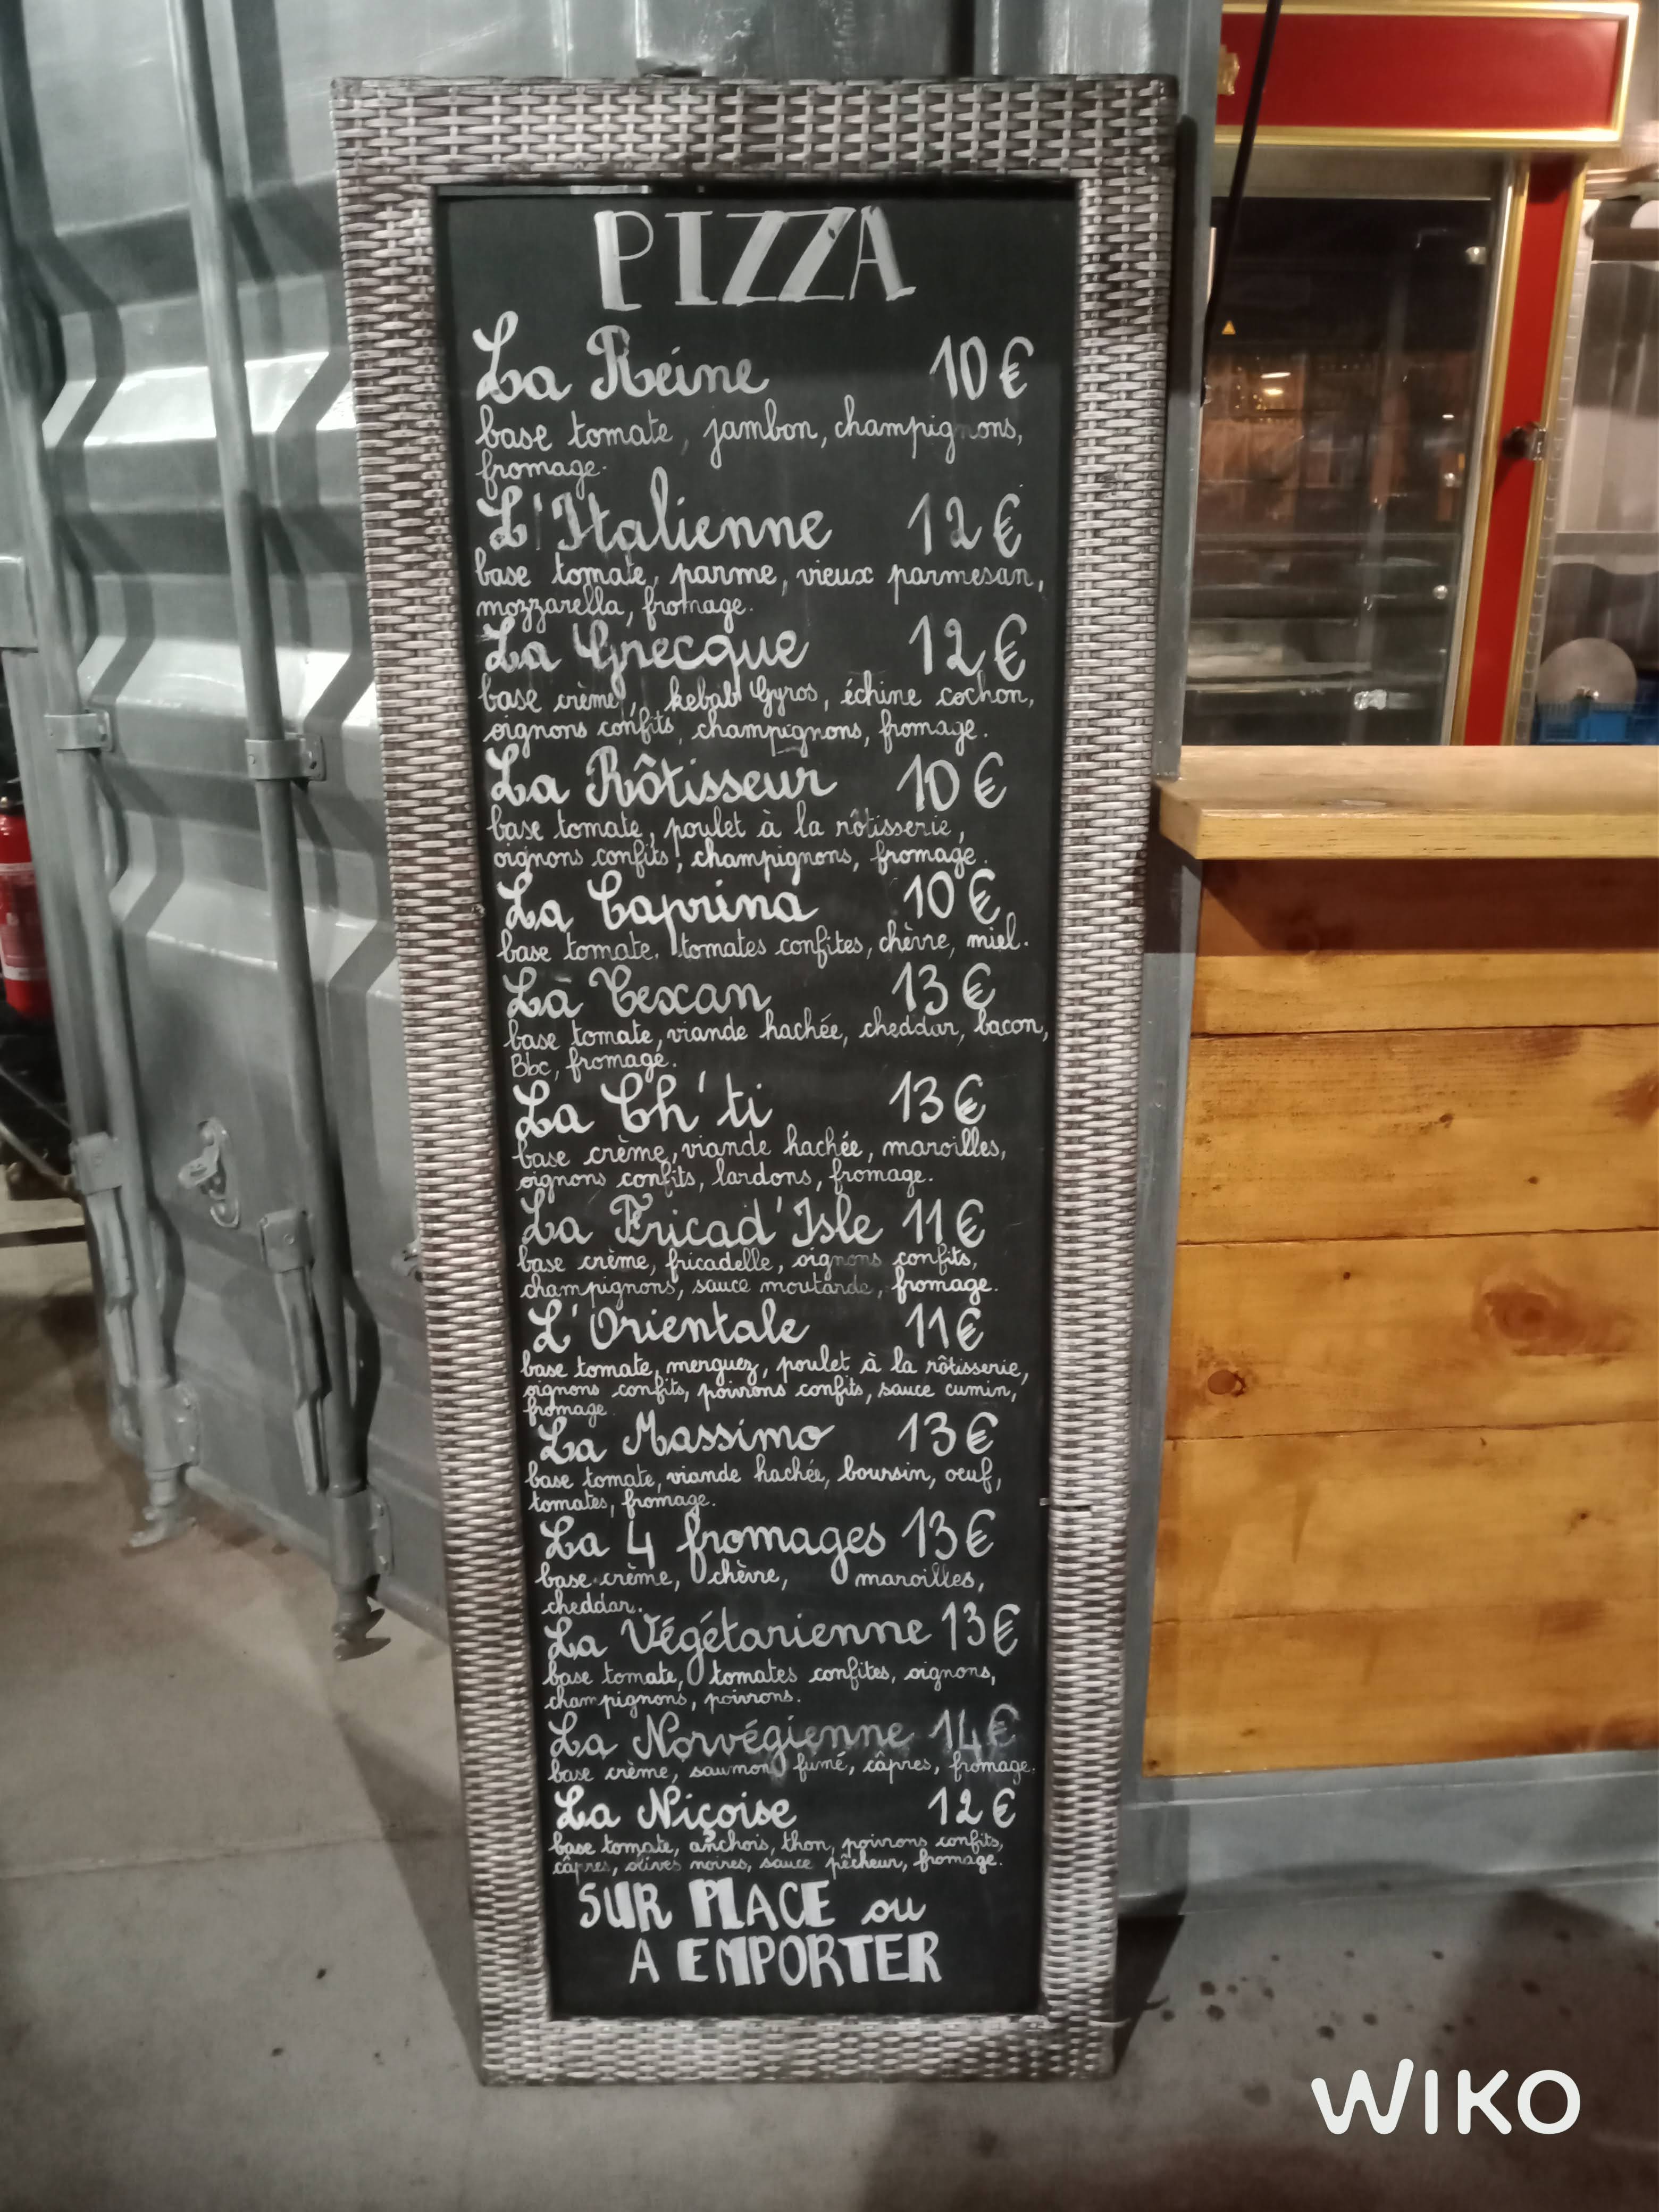 PIZZA
La Reine 10€
base tomate, jambon, champignons,
fromage.
L'Italienne 12€
base tomate, parme, vieux parmesan,
mozzarella, fromage.
La Grecque 12€
base crème, kebab Gyros, échine cochon,
oignons confits, champignons, fromage.
La Rôtisseur 10€
base tomate, poulet à la rôtisserie,
oignons confits, champignons, fromage.
La Caprina 10€
base tomate, tomates confites, chèvre, miel.
La Texan 13€
base tomate, viande hachée, cheddar, bacon,
Bbc, fromage.
La Ch'ti 13€
base crème, viande hachée, maroilles,
oignons confits, lardons, fromage.
La Fricad'Isle 11€
base crème, fricadelle, oignons confits,
champignons, sauce moutarde, fromage.
L'Orientale 11€
base tomate, merguez, poulet à la rôtisserie,
oignons confits, poivrons confits, sauce cumin,
fromage
La Massimo 13€
base tomate, viande hachée, boursin, oeuf,
tomates, fromage.
La 4 fromages 13€
base crème, chèvre, maroilles,
cheddar.
La Végétarienne 13€
base tomate, tomates confites, oignons,
champignons, poivrons.
La Norvégienne 14€
base crème, saumon fumé, câpres, fromage.
La Niçoise 12€
base tomate, anchois, thon, poivrons confits,
câpres, olives noires, sauce pêcheur, fromage.
SUR PLACE ou
A EMPORTER
WIKO